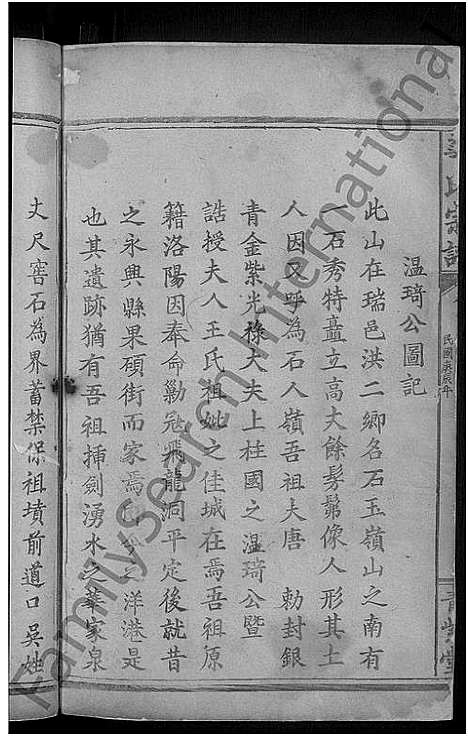 氏宗譜
民國庚辰年
青紫堂
温琦公圖記
此山在瑞邑洪二鄉名石玉嶺山之南有
一石秀特矗立高大餘髣髴像人形其土
人因又呼為石人嶺吾祖夫唐 勅封銀
青金紫光祿大夫上柱國之温琦公暨
誥授夫人王氏祖妣之佳城在焉吾祖原
籍洛陽因奉命勦寇飛龍洞平定後就昔
之永興縣果碩街而家焉 之洋港是
也其遺跡猶有吾祖揷劍湧水之華家泉
丈尺窖石為界蓄禁保祖墳前道口吳姓
FamilySearch International